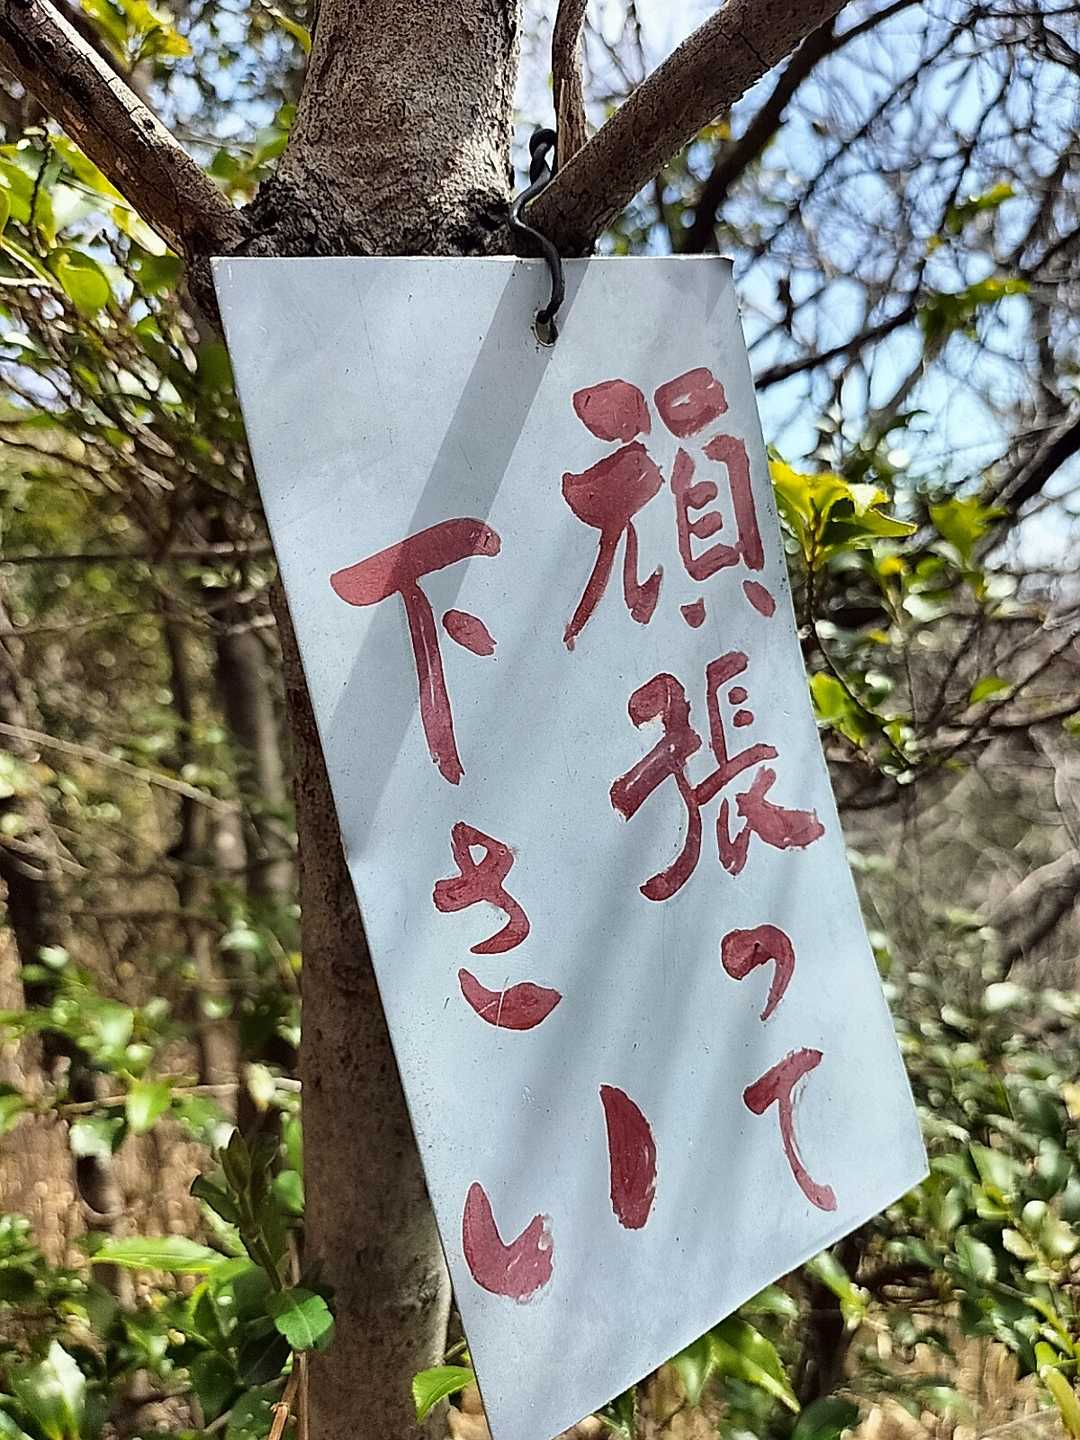 頑張って
下さい